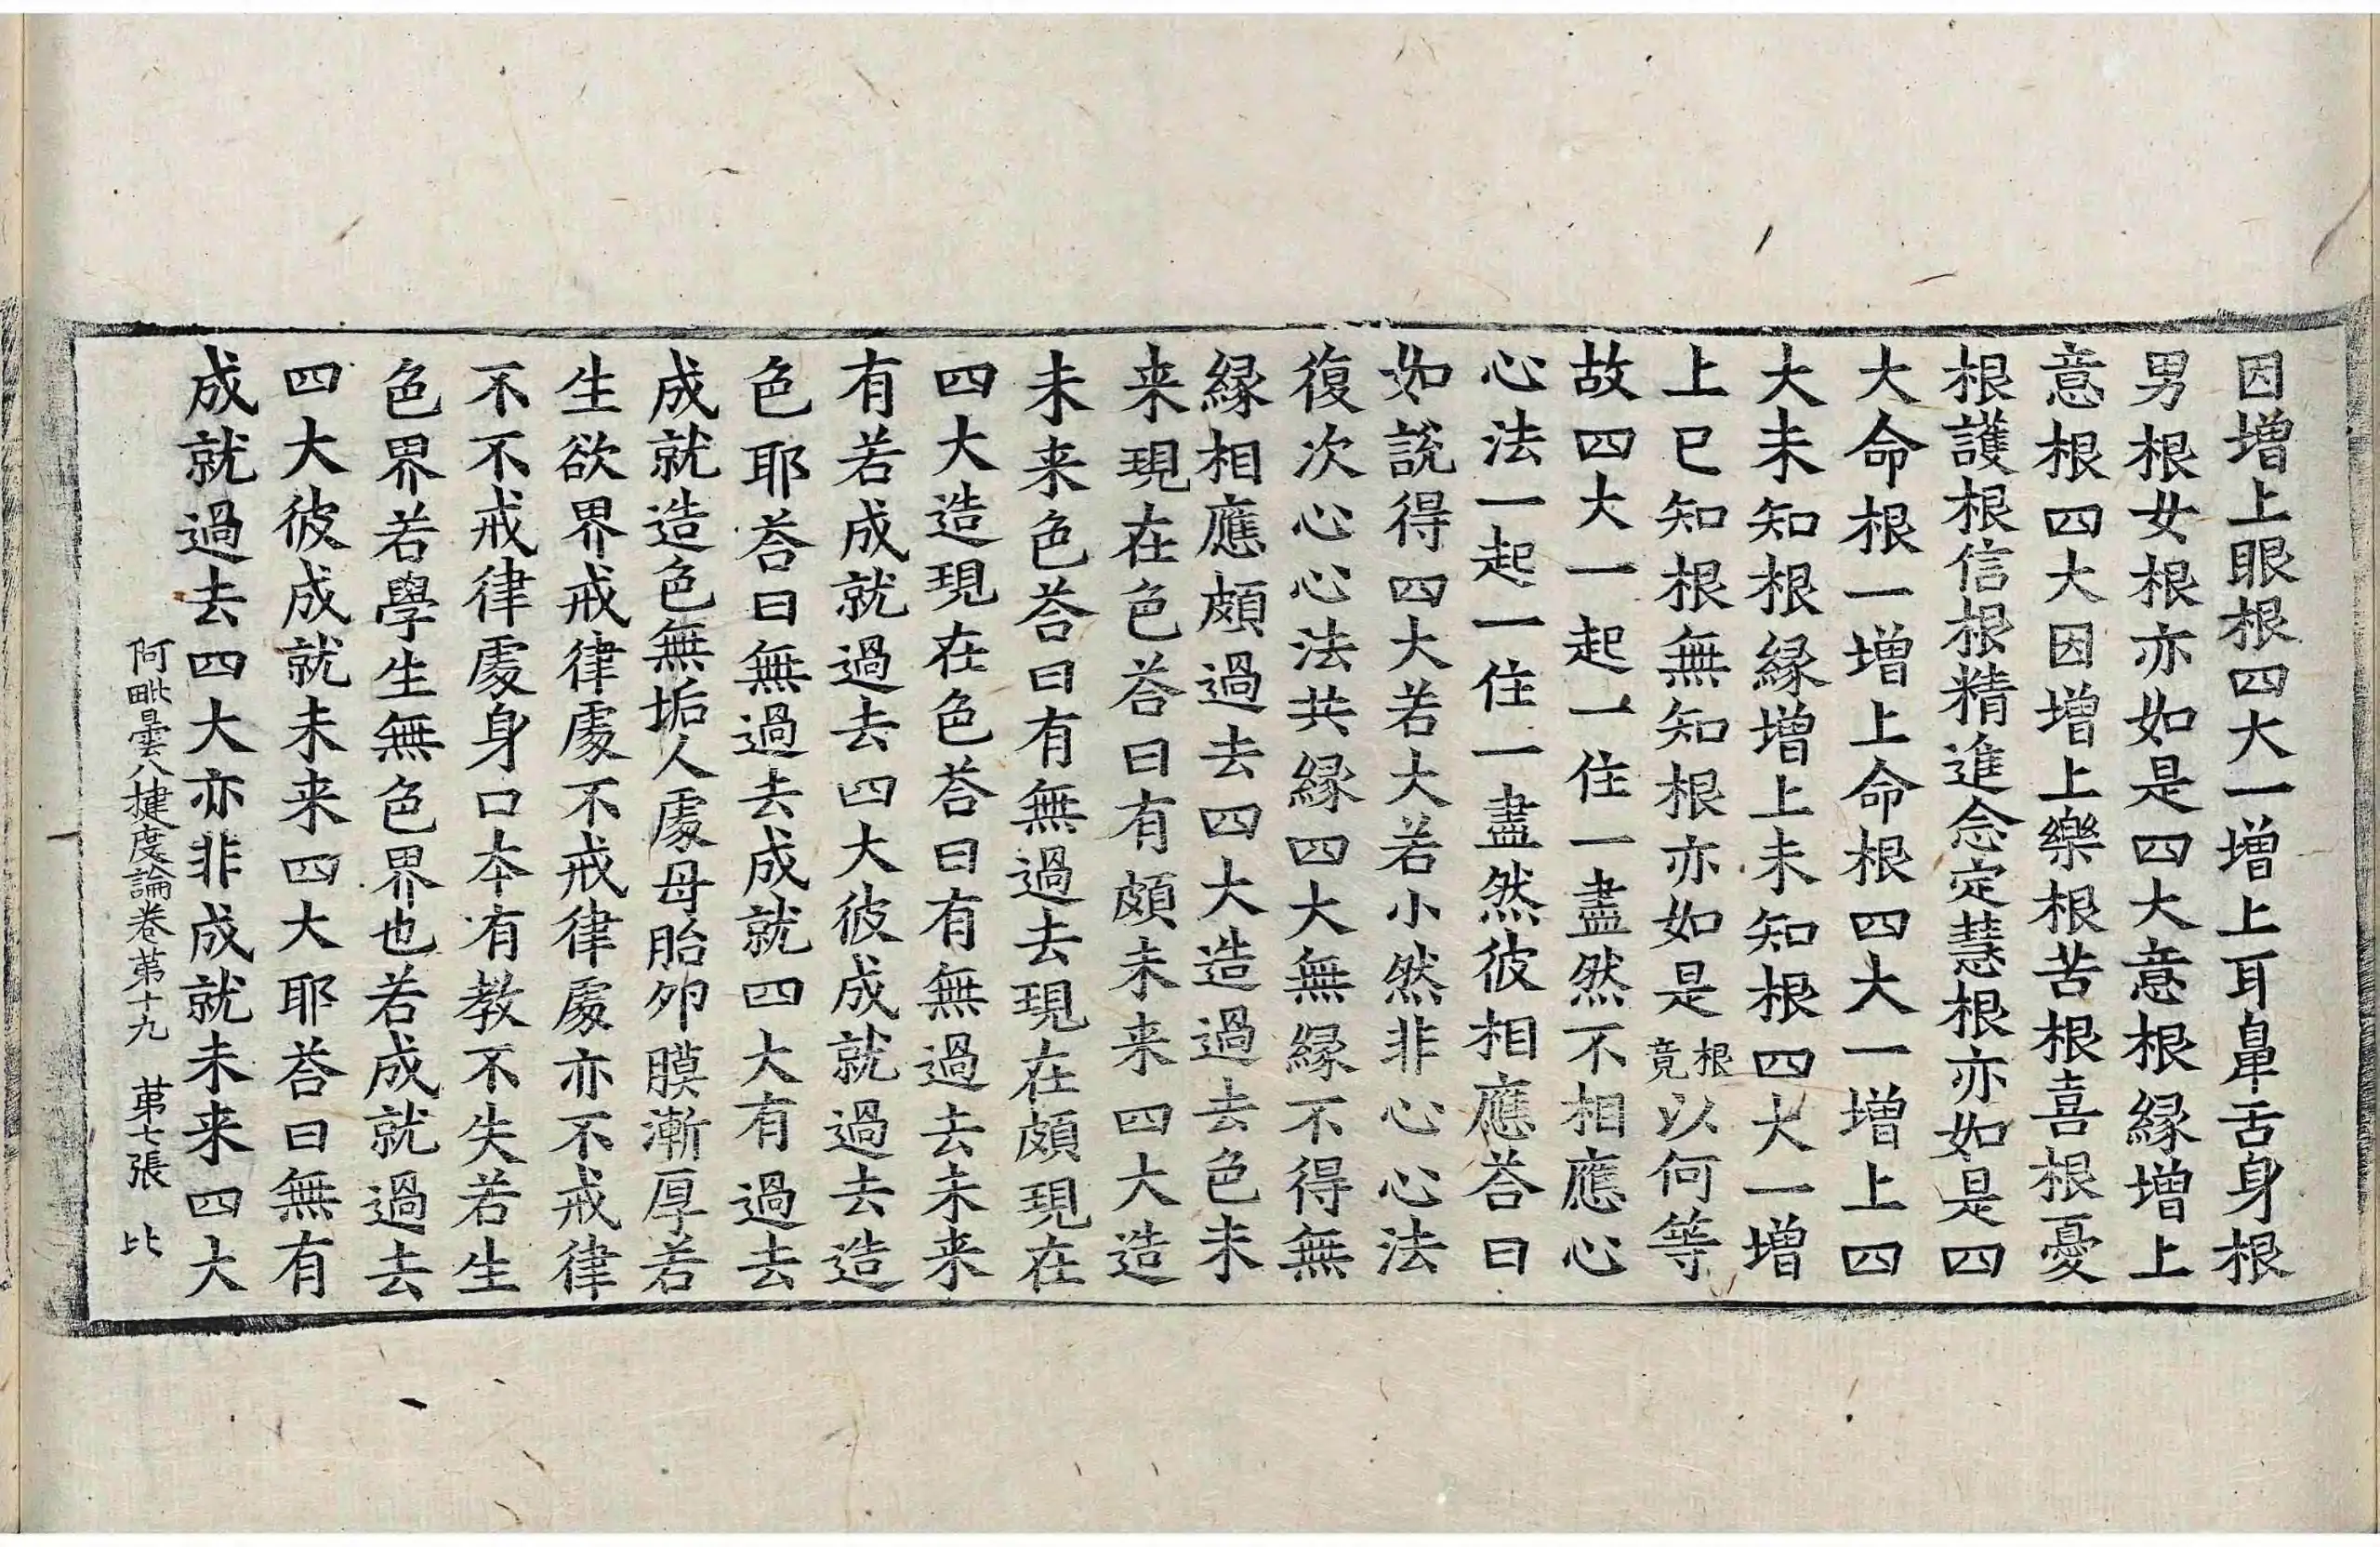 因增上眼根四大一增上耳鼻舌身根
男根女根亦如是四大意根緣增上
意根四大因增上樂根苦根喜根憂
根護根信根精進念定慧根亦如是四
大命根一增上命根四大一增上四
大未知根緣增上未知根四大一增
上已知根無知根亦如是根竟以何等
故四大一起一住一盡然不相應心
心法一起一住一盡然彼相應荅曰
如說得四大若大若小然非心心法
復次心心法共緣四大無緣不得無
緣相應頗過去四大造過去色未
来現在色荅曰有頗未来四大造
未来色荅曰有無過去現在頗現在
四大造現在色荅曰有無過去未来
有若成就過去四大彼成就過去造
色耶荅曰無過去成就四大有過去
成就造色無垢人處母胎卵膜漸厚若
生欲界戒律處不戒律處亦不戒律
不不戒律處身口本有教不失若生
色界若學生無色界也若成就過去
四大彼成就未来四大耶荅曰無有
成就過去四大亦非成就未来四大
阿毗曇八揵度論卷苐十九 苐七張 比